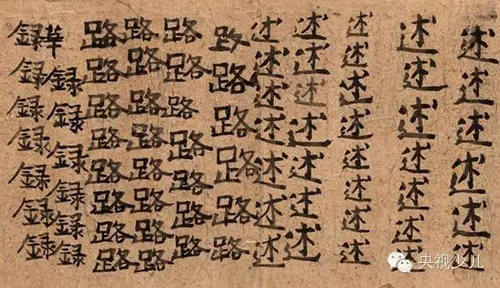 述述述述述述述
述述述述述述述
述述述述述述述述
述述述述述述述
述述述述述述述
路路路路路路
路路路路路路路
路路路路路路路
路路路路路路路路
華録録録録録録
録録録録録録録
央视少儿